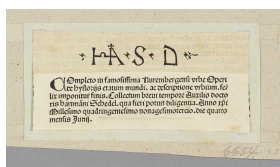 H A S D
Completo in famosissima Nurembergensi urbe Operi
de hystorijs etatum mundi. ac descriptione urbium. felix
imponitur finis. Collectum breui tempore Auxilio docto
ris hartmāni Schedel. qua fieri potuit diligentia. Anno xp̄i
Millesimo quadringentesimo nonagesimotercio. die quarto
mensis Junij.